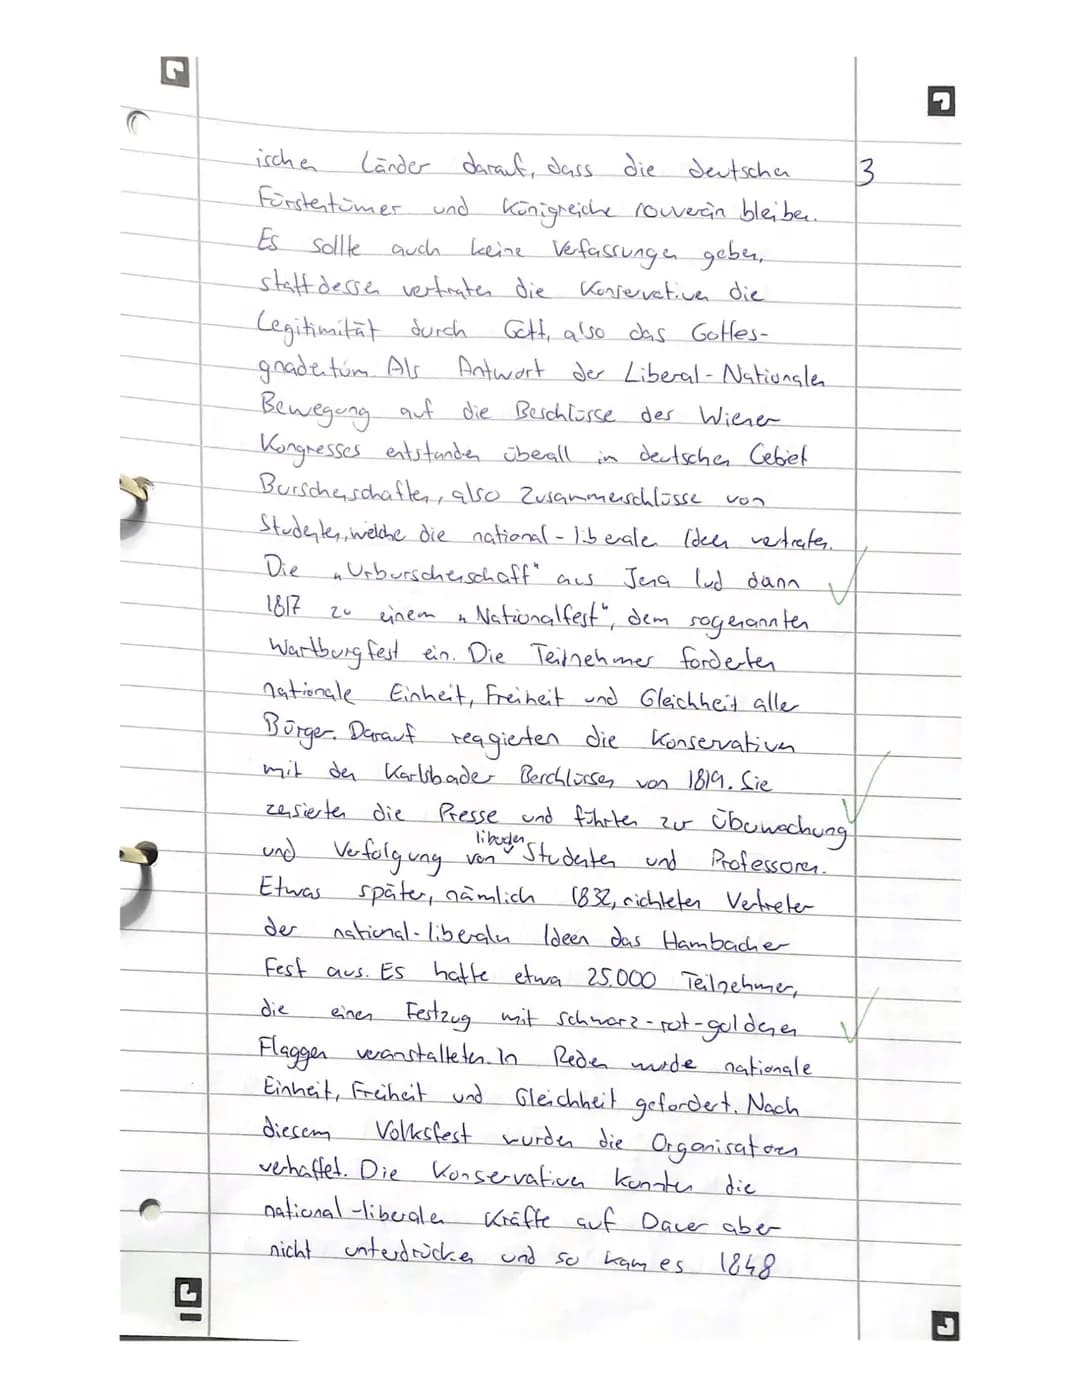 ischen Länder darauf, dass die deutschen
3
Fürstentümer und Königreiche souverän bleiben.
Es sollte auch keine Verfassungen geben,
stattdessen vertraten die Konservativen die
Legitimität durch Gott, also das Gottes-
gnadentum. Als Antwort der Liberal-Nationalen
Bewegung auf die Beschlüsse des Wiener
Kongresses entstanden überall in deutschen Gebiet
Burschenschaften, also Zusammenschlüsse von
Studenten, welche die national-liberalen Ideen vertraten.
Die „Urburschenschaft" aus Jena lud dann
1817 zu einem „Nationalfest", dem sogenannten
Wartburgfest ein. Die Teilnehmer forderten
nationale Einheit, Freiheit und Gleichheit aller
Bürger. Darauf reagierten die Konservativen
mit den Karlsbader Beschlüssen von 1819. Sie
zensierten die Presse und führten zur Überwachung
und Verfolgung von liberalen Studenten und Professoren.
Etwas später, nämlich 1832, richteten Vertreter
der national-liberalen Ideen das Hambacher
Fest aus. Es hatte etwa 25.000 Teilnehmer,
die einen Festzug mit schwarz-rot-goldenen
Flaggen veranstalteten. In Reden wurde nationale
Einheit, Freiheit und Gleichheit gefordert. Nach
diesem Volksfest wurden die Organisatoren
verhaftet. Die Konservativen konnten die
national-liberalen Kräfte auf Dauer aber
nicht unterdrücken und so kam es 1848